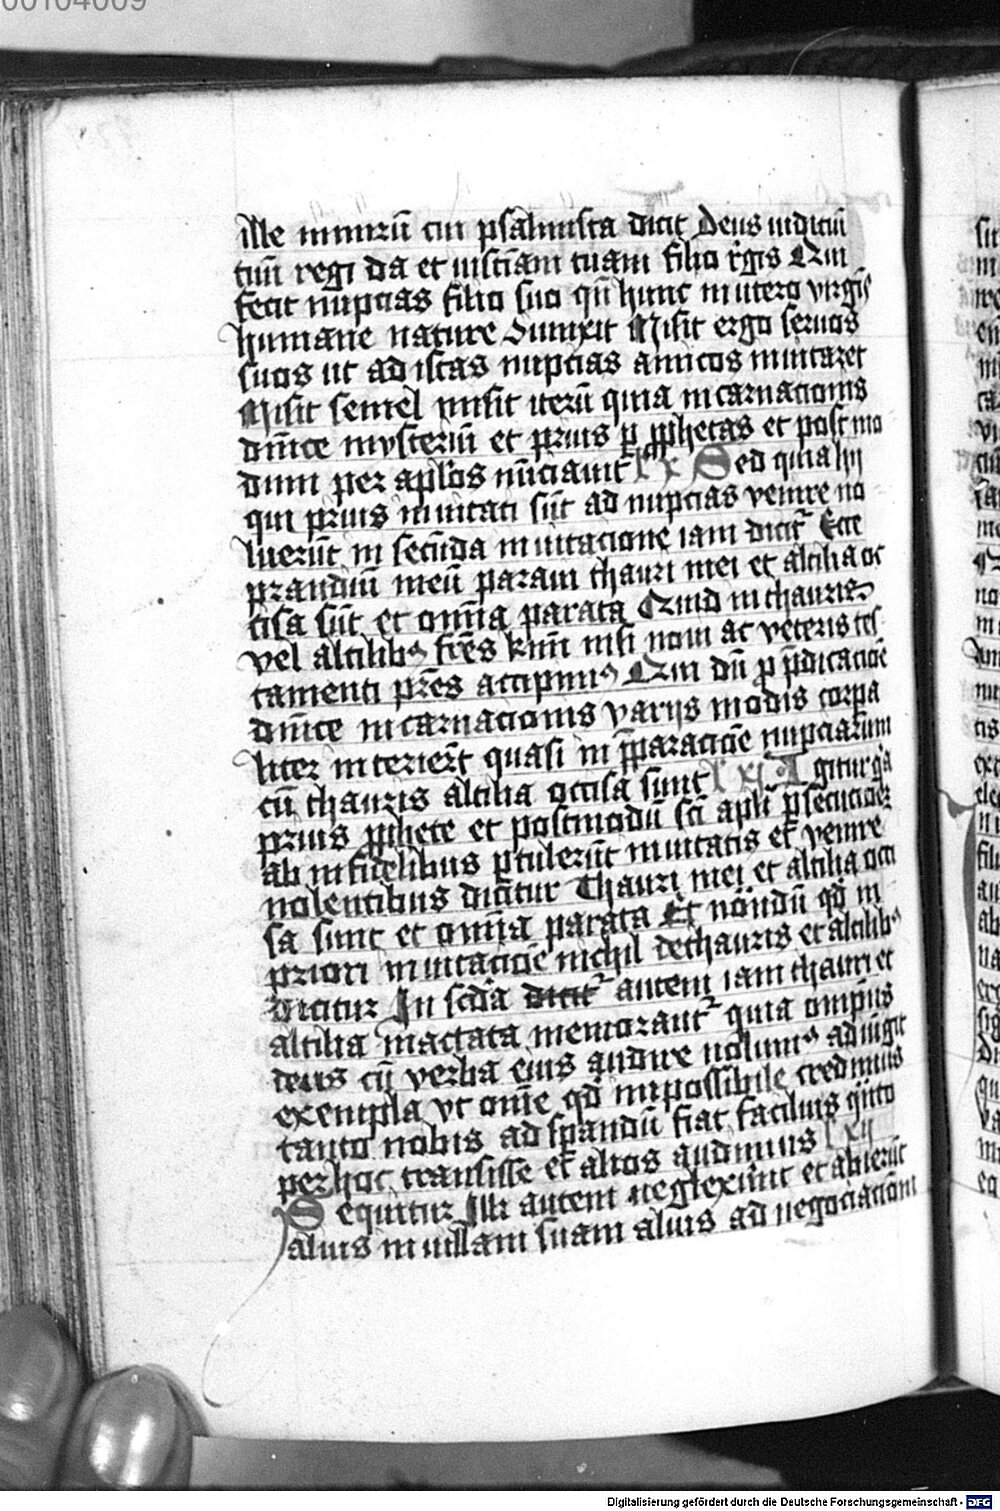 00104009
ille mirum cui psalmista dicit Deus iudiciū
tuū regi da et iusticiam tuam filio rgis Qui
fecit nupcias filio suo qn hunc in utero virgīs
humane nature Sumxit Misit ergo seruos
suos ut ad istas nupcias amicos inuitaret
Misit semel misit iterū quia incarnacionis
dn̄ice mysteriū et prius p pphetas et post mo
dum per apl'os nūciauit lx Sed quia hij
qui prius inuitati sūt ad nupcias venire no
luerūt in secūda inuitacione iam dicit Ecce
prandiū meū paraui thauri mei et altilia oc
cisa sūt et omīa parata Quid in thauris
vel altilib9 frēs kmi nisi noui ac veteris tes
tamenti pr̄es accipim9 Qui dū p pdicacioē
dn̄ice incarnacionis varijs modis corpa
liter interiert quasi in pparacioē nupciarum
cū thauris altilia occisa sunt lxj Igitur qa
prius pphete et postmodū sc̄i apl'i psecucioēs
ab infidelibus ptulerūt inuitatis et venire
nolentibus dicitur Thauri mei et altilia occi
sa sunt et omīa parata Et nōndū qd in
priori inuitacioē nichil de thauris et altilib9
dicitur In scd'a dicit autem iam thauri et
altilia mactata memorant quia ompūs
deus cū verba eius audire nolum9 adiūgit
exempla vt om̄e qd impossibile credimus
tanto nobis ad spandū fiat facilius q̄nto
per hoc transisse et alios audimus lxij
Sequitur Illi autem neglexūnt et abierūt
alius in uillam suam alius ad negociacionē
Digitalisierung gefördert durch die Deutsche Forschungsgemeinschaft - DFG